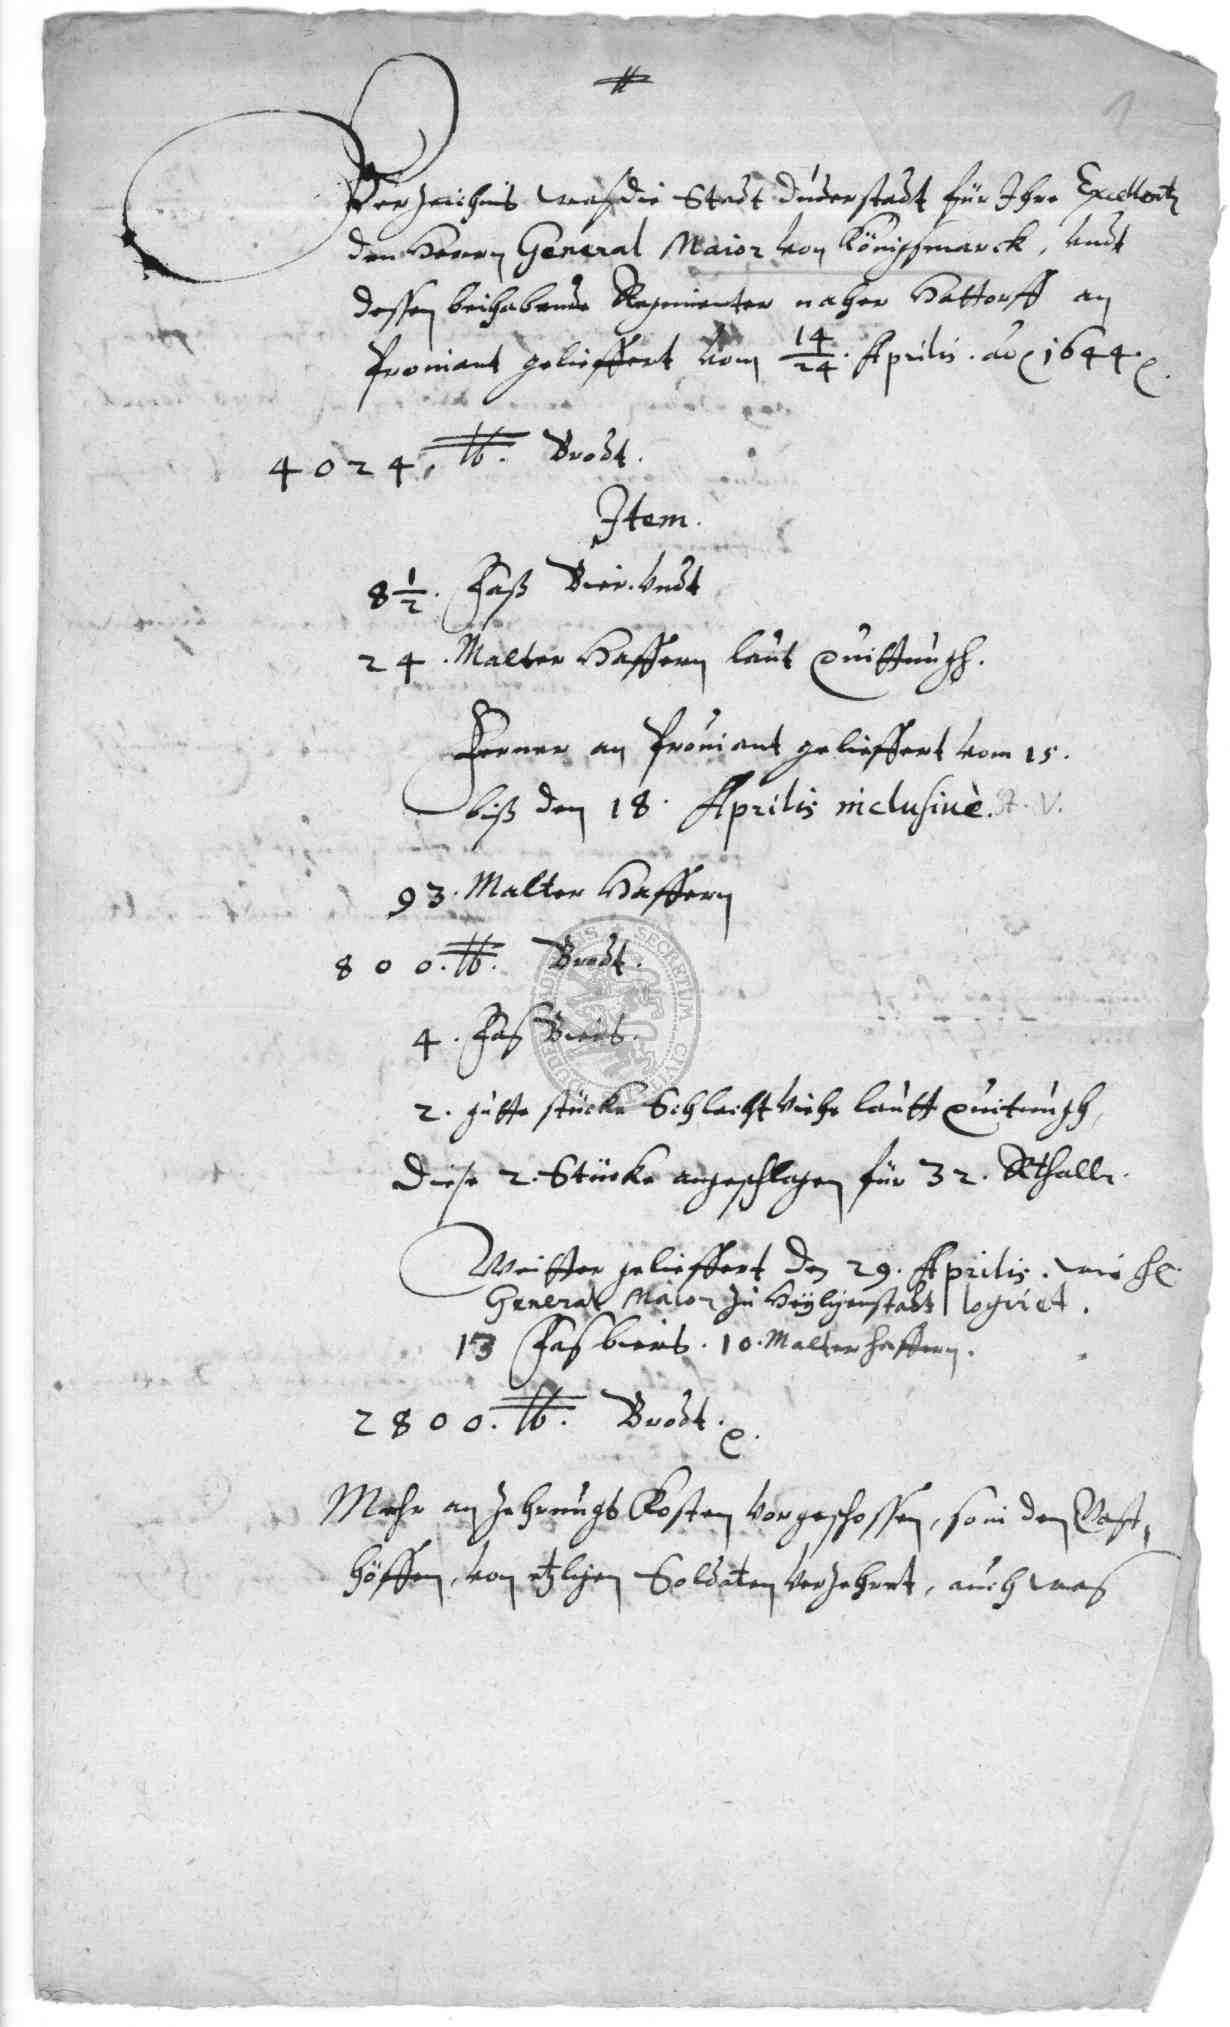 1
Verzeichnis waß die Stadt Duderstadt für Ihre Excellentz
den Herrn General Maior von Königßmarck, undt
dessen beihabende Regimenter naher Hattorff an
Proviant gelieffert vom 14/24. Aprilis. ao 1644.
4024. ℔. Brodt.
Item.
8 1/2. Faß Bier. undt
24. Malter Haffern laut Quittungh.
Ferner an Proviant gelieffert vom 15.
biß den 18. Aprilis inclusivè. St. V.
93. Malter Haffern
800. ℔. Brodt.
4. Faß Biers.
2. gutte stücke Schlacht Viehe lautt Quitungh,
Diese 2. Stücke angeschlagen für 32. Rthall.
Weitter gelieffert den 29. Aprilis. wie H.
General Maior zu Heyligenstadt logiret.
13 Faß biers. 10. Malter haffern.
2800. ℔. Brodt.
Mehr an Zehrungs Kosten vorgeschossen, so in den Gast,
höffen, von etzligen Soldaten verzehret, auch waß
SECRETUM CIVI